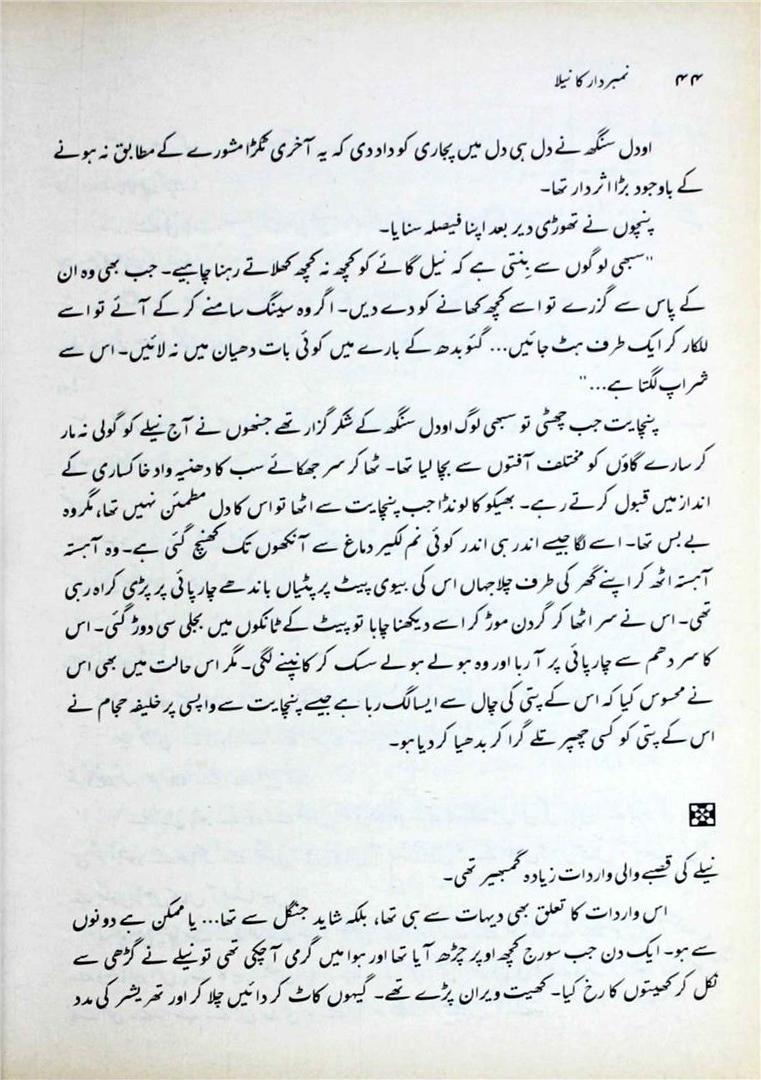 ۴۴ نمبردار کا نیلا
اودل سنگھ نے دل ہی دل میں پجاری کو داد دی کہ یہ آخری ٹکڑا مشورے کے مطابق نہ ہونے
کے باوجود بڑا اثر دار تھا۔
پنچوں نے تھوڑی دیر بعد اپنا فیصلہ سنایا۔
"سبھی لوگوں سے بِنتی ہے کہ نیل گائے کو کچھ نہ کچھ کھلاتے رہنا چاہیے۔ جب بھی وہ ان
کے پاس سے گزرے تو اسے کچھ کھانے کو دے دیں۔ اگر وہ سینگ سامنے کر کے آئے تو اسے
للکار کر ایک طرف ہٹ جائیں... گئو بدھ کے بارے میں کوئی بات دھیان میں نہ لائیں۔ اس سے
شراپ لگتا ہے..."
پنچایت جب چھٹی تو سبھی لوگ اودل سنگھ کے شکر گزار تھے جنھوں نے آج نیلے کو گولی نہ مار
کر سارے گاؤں کو مختلف آفتوں سے بچا لیا تھا۔ ٹھاکر سر جھکائے سب کا دھنیہ واد خاکساری کے
انداز میں قبول کرتے رہے۔ بھیکو کا لونڈا جب پنچایت سے اٹھا تو اس کا دل مطمئن نہیں تھا، مگر وہ
بے بس تھا۔ اسے لگا جیسے اندر ہی اندر کوئی نم لکیر دماغ سے آنکھوں تک کھنچ گئی ہے۔ وہ آہستہ
آہستہ اٹھ کر اپنے گھر کی طرف چلا جہاں اس کی بیوی پیٹ پر پٹیاں باندھے چارپائی پر پڑی کراہ رہی
تھی۔ اس نے سر اٹھا کر گردن موڑ کر اسے دیکھنا چاہا تو پیٹ کے ٹانکوں میں بجلی سی دوڑ گئی۔ اس
کا سر دھم سے چارپائی پر آ رہا اور وہ ہولے ہولے سسک کر کانپنے لگی۔ مگر اس حالت میں بھی اس
نے محسوس کیا کہ اس کے پتی کی چال سے ایسا لگ رہا ہے جیسے پنچایت سے واپسی پر خلیفہ حجام نے
اس کے پتی کو کسی چھپر تلے گرا کر بدھیا کر دیا ہو۔
نیلے کی قصبے والی واردات زیادہ گمبھیر تھی۔
اس واردات کا تعلق بھی دیہات سے ہی تھا، بلکہ شاید جنگل سے تھا... یا ممکن ہے دونوں
سے ہو۔ ایک دن جب سورج کچھ اوپر چڑھ آیا تھا اور ہوا میں گرمی آ چکی تھی تو نیلے نے گڑھی سے
نکل کر کھیتوں کا رخ کیا۔ کھیت ویران پڑے تھے۔ گیہوں کاٹ کر دائیں چلا کر اور تھریشر کی مدد